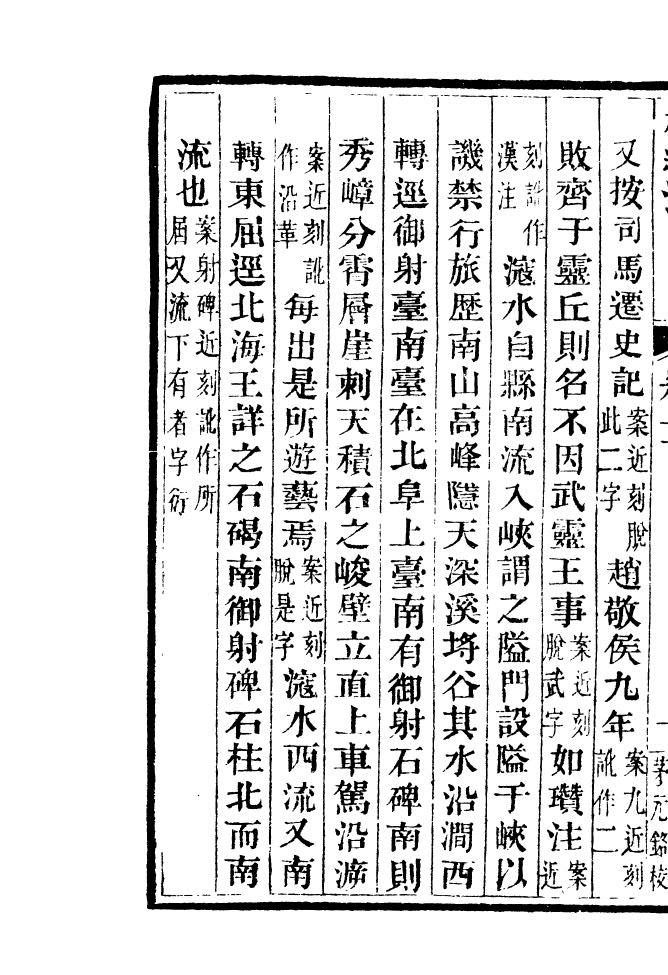 又按司馬遷史記案近刻脫此二字趙敬侯九年案九近刻訛作二
敗齊于靈丘則名不因武靈王事案近刻脫武字如瓚注案近
刻訛作漢注滱水自縣南流入峽謂之隘門設隘于峽以
譏禁行旅歴南山高峰隱天深溪埒谷其水沿澗西
轉逕御射臺南臺在北阜上臺南有御射石碑南則
秀嶂分霄層崖刺天積石之峻壁立直上車駕沿溯
案近刻訛作沿革每出是所遊藝焉案近刻脫是字滱水西流又南
轉東屈逕北海王詳之石碣南御射碑石柱北而南
流也案射碑近刻訛作所屆又流下有者字衍